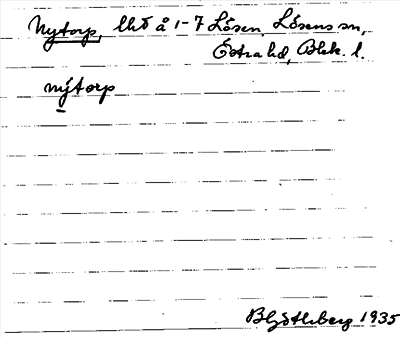 Nytorp, lht å 1-7 Lösen, Lösens sn,
Östra hd, Blek. l.
nýtorp
1935